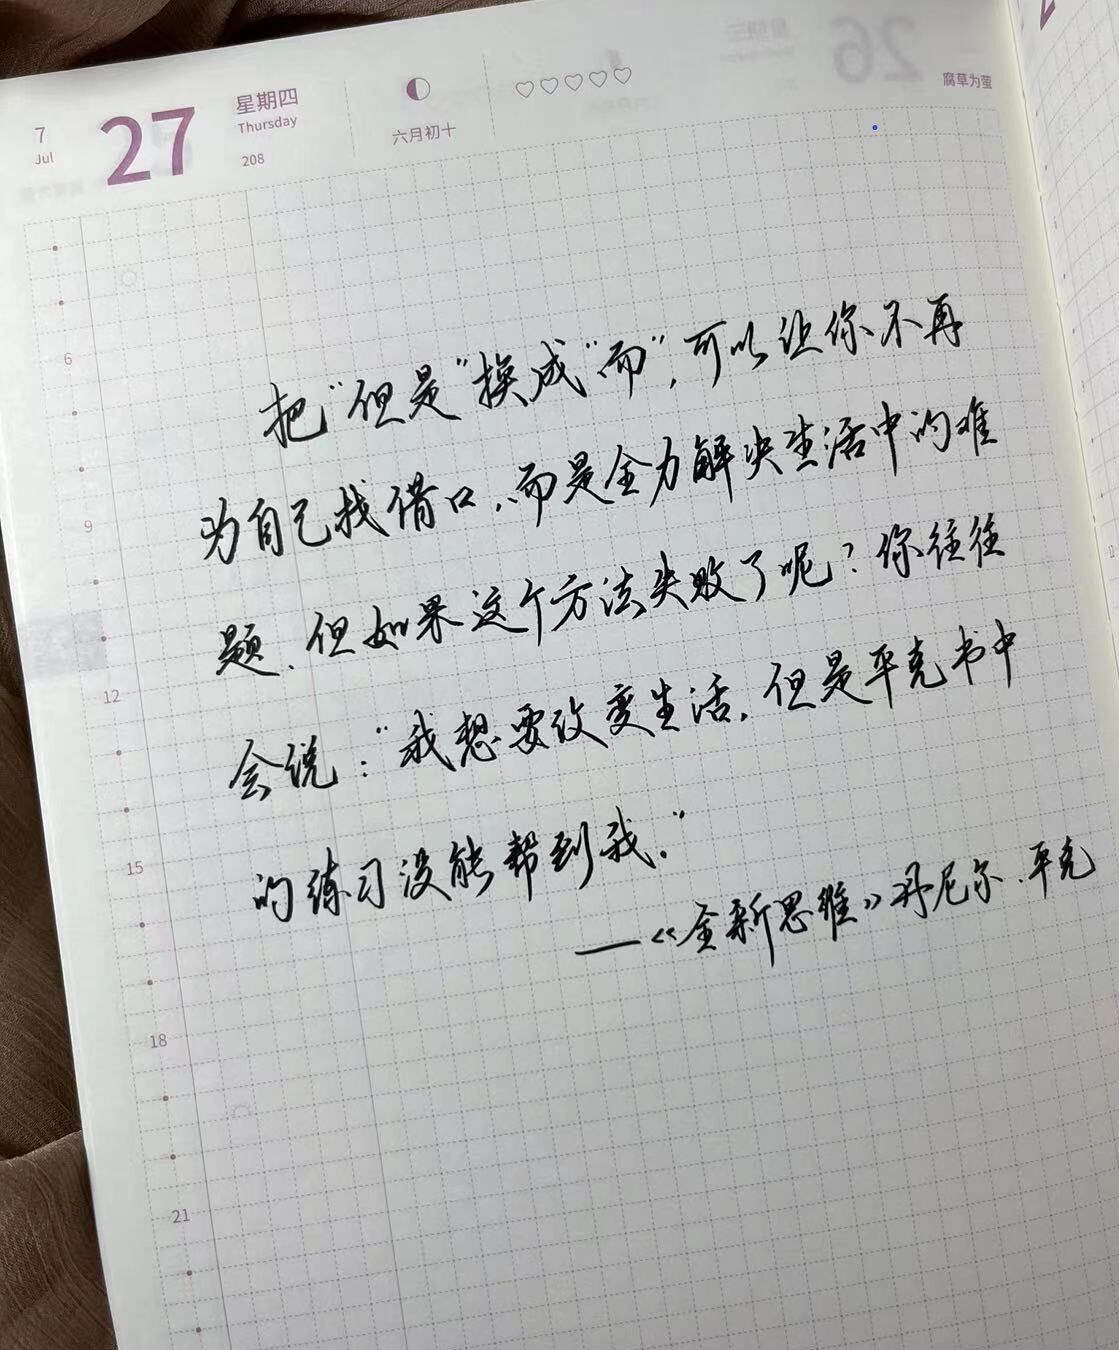 7
Jul
27
星期四
Thursday
208
六月初十
26
腐草为萤
6
9
12
15
18
21
把"但是"换成"而",可以让你不再
为自己找借口,而是全力解决生活中的难
题、但如果这个方法失败了呢?你往往
会说:"我想要改变生活,但是平克书中
的练习没能帮到我."
——《全新思维》丹尼尔.平克